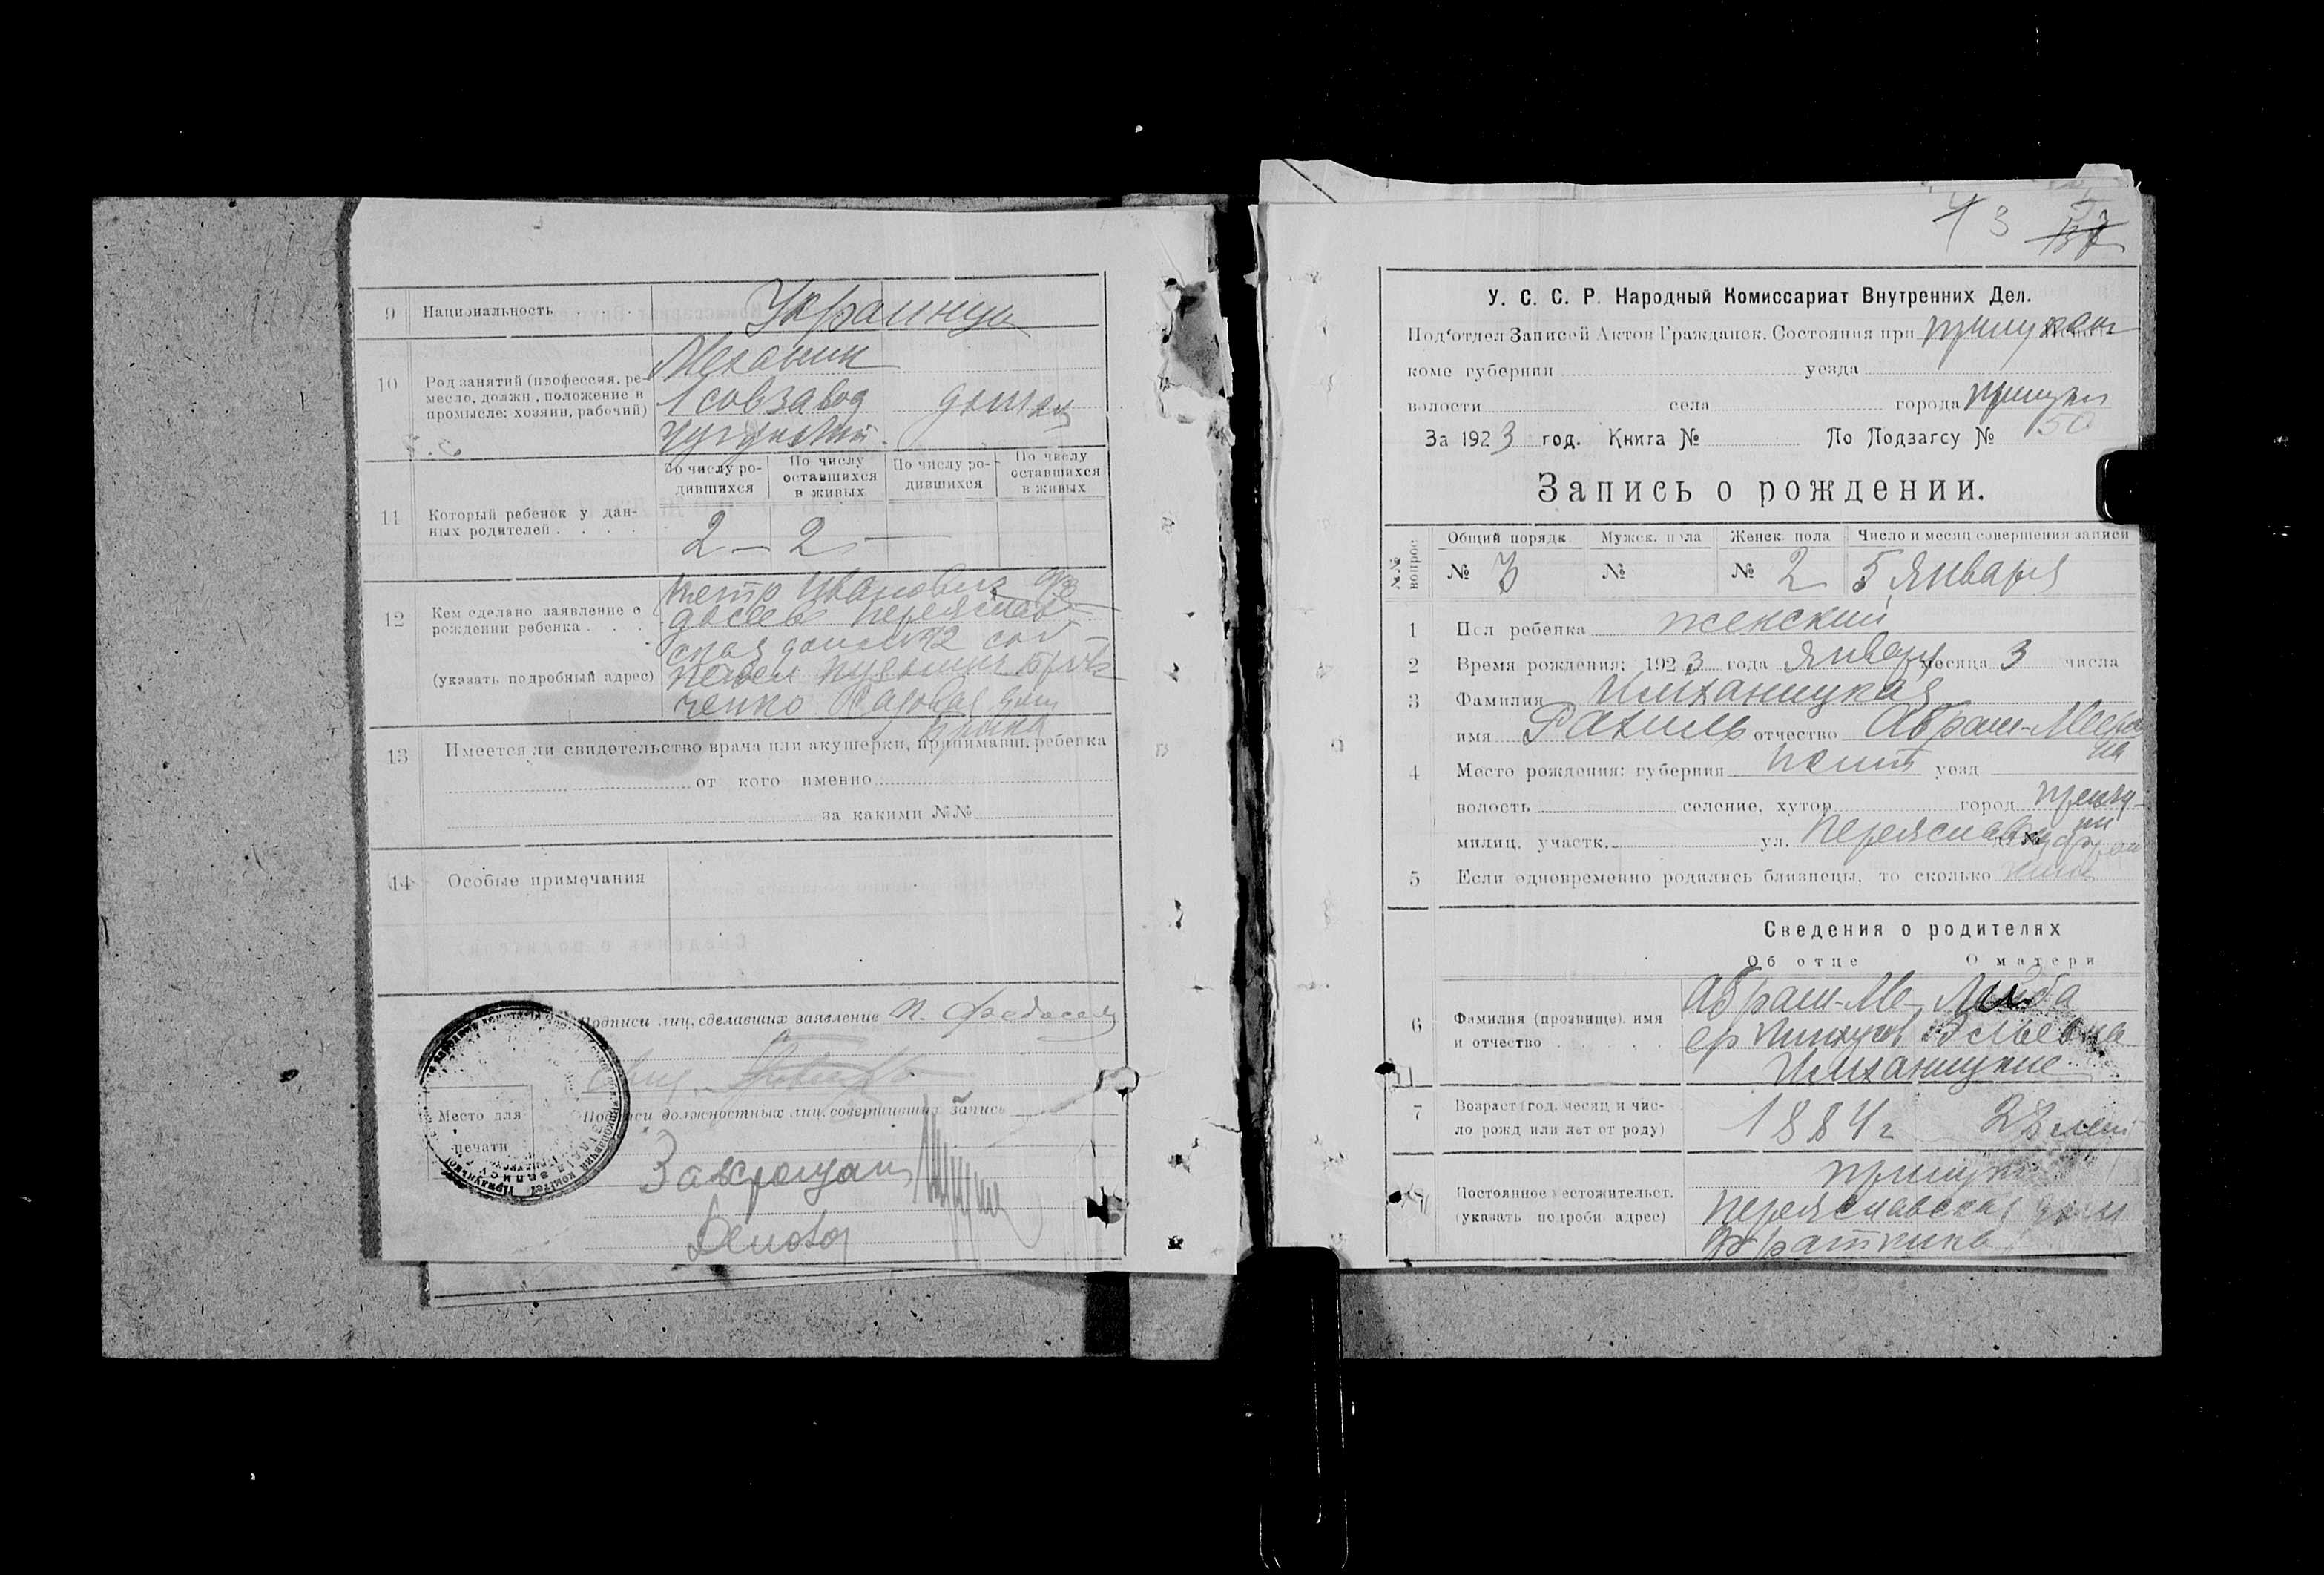 9 Национальность Украинцы
10 Род занятий (профессия, ре-
месло, должн., положение в
промысле: хозяин, рабочий)
Механик
1 совзавод
дома
11 Который ребенок у дан-
ных родителей . . . .
По числу ро-
дившихся
По числу
оставшихся
в живых
По числу ро-
дившихся
По числу
оставшихся
в живых
2 — 2 —
12 Кем сделано заявление о
рождении ребенка . . .
(указать подробный адрес)
Петр Иванович Фе
досеев Переяслав
ская дом №72
ченко Садовая дом
13 Имеется ли свидетельство врача или акушерки, принимавш. ребенка
от кого именно
за какими №№
14 Особые примечания
Подписи лиц, сделавших заявление П. Федосеев
Подписи должностных лиц, совершивших запись
Место для
печати
Завзагсом
Делов
4 3
У. С. С. Р. Народный Комиссариат Внутренних Дел.
Под'отдел Записей Актов Гражданск. Состояния при Прилукском
коме губернии уезда
волости села города Прилуки
За 1923 год. Книга № По Подзагсу № 50
Запись о рождении.
№№ вопрос
Общий порядк. Мужск. пола Женск. пола Число и месяц совершения записи
№ 3 № № 2 5 Января
1 Пол ребенка женский
2 Время рождения: 1923 года Января месяца 3 числа
3 Фамилия Имханицкая
имя Рахиль отчество Абрам-Мееров
на
4 Место рождения: губерния Полт уезд
волость селение, хутор город Прилу-
ки
милиц. участк. ул. Переяслав
5 Если одновременно родились близнецы, то сколько
Сведения о родителях
Об отце О матери
6 Фамилия (прозвище), имя
и отчество . . . . .
Абрам-Ме-
ер Пинхусов
Имханицкие
7 Возраст (год, месяц и чис-
ло рожд. или лет от роду)
1884 г 28 лет
Постоянное местожительст.
(указать подробн. адрес)
Прилуки
Переяславская дом
Фраткина